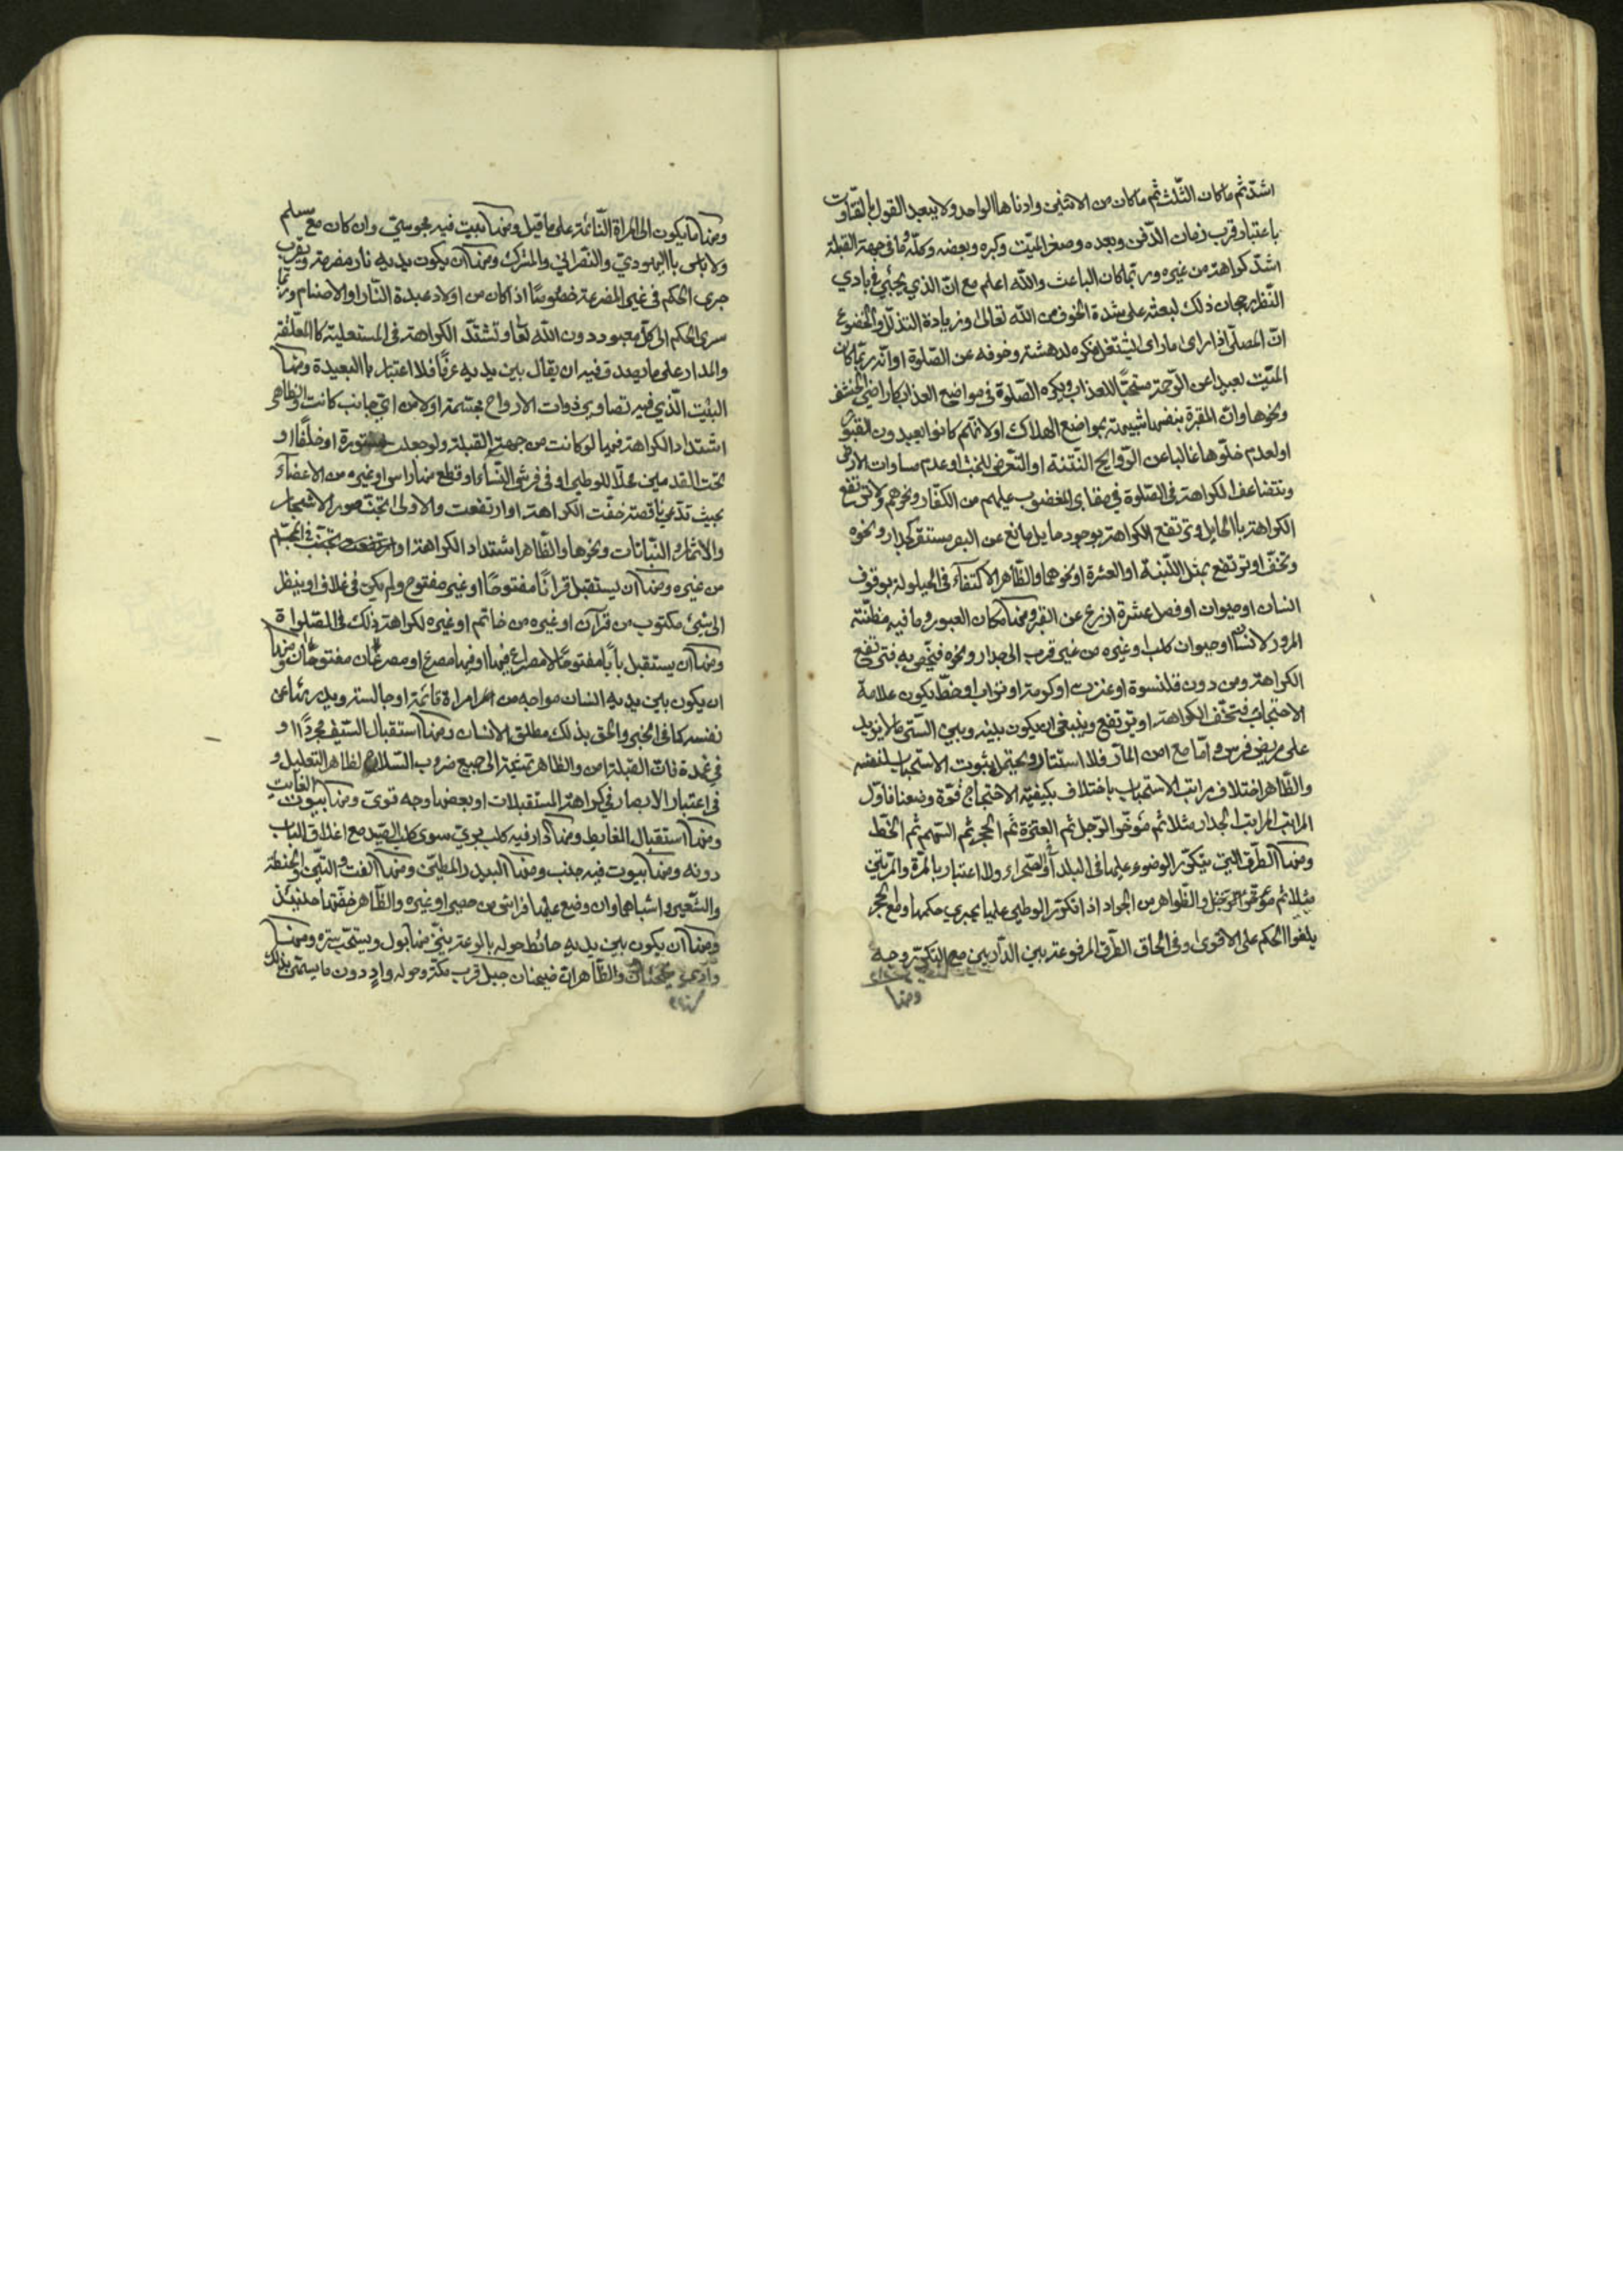 اشدّ ثم ماكان الثلث ثم ماكان من الاثنين وادناها الواحد ولا يبعد القول بالتفاوت
باعتبار قرب زمان الدّفن وبعده وصغر الميّت وكبره وبعضه وكلّه وما فى جهة القبلة
اشدّ كراهة من غيره وربّما كان الباعث والله اعلم مع انّ الذي يجئ في بادي
النّظر رجحان ذلك لبعثه على شدة الخوف من الله تعالى وزيادة التذلّل والخضوع
انّ المصلّى اذا راى ما راى اشتغل فكره لدهشته وخوفه عن الصّلوة او انّه ربّما كان
الميّت بعيدا عن الرّحمة مستحقّا للعذاب ويكره الصّلوة فى مواضع العذاب كاراضي الخسف
ونحوها وانّ المقبرة بنفسها شبيهة بمواضع الهلاك او لانّهم كانوا يعبدون القبور
او لعدم خلّوها غالبا عن الرّوايح النّتنة او التّعرض للخبث او عدم مساوات الارض
وتتضاعف الكراهة فى الصّلوة في مقابر المغضوب عليهم من الكفّار ونحوهم ولا ترتفع
الكراهة بالحايل وترتفع الكراهة بوجود حايل مانع عن البصر مستقر كجدار ونحوه
وتخفّ او ترتفع بمثل اللّبنة او العنزة او نحوهما والظّاهر الاكتفآء فى الحيلولة بوقوف
انسان او حيوان او فصل عشرة اذرع عن القبر ومنها مكان العبور وما فيه مظنّة
المرور لانسان او حيوان كلب او غيره من غير قرب الى جدار ونحوه فيخصّ به فترتفع
الكراهة ومن دون قلنسوة او عنزة او كومة او تراب او خطّ يكون علامة
الاحتجاب فتخفّف الكراهة او ترتفع وينبغي ان يكون بينه وبين السّتر ما لا يزيد
على مربض فرس وامّا مع امن المارّ فلا استتار ويحتمل ثبوت الاستحباب لنفسه
والظّاهر اختلاف مراتب الاستحباب باختلاف كيفيّة الاحتجاج قوّة وضعفا فاوّل
المراتب الجدار مثلا ثم مؤخّر الرّحل ثم العنزة ثم الحجر ثم السّهم ثم الخطّ
ومنها الطّرق التي يتكرّر الوضوع عليها فى البلد او الصّحراء ولا اعتبار بالمرّة والمرّتين
والظّواهر من الجواد اذا تكرّر الوطي عليها يجري حكمها ومع الحجر
يلغوا الحكم على الاقوى وفى الحاق الطّرق المرفوعة بين الدّاريين مع التكرّر وجه
ومنها
ومنها ما يكون الى المراة النّائمة على ما قيل ومنها بيت فيه مجوسيّ وان كان مع مسلم
ولا باس باليهوديّ والنّصراني والمشرك ومنها ان يكون بين يديه نار مضرمة ويقرب
جرى الحكم فى غير المضرمة خصوصًا اذا كان من اولاد عبدة النّار او الاصنام وربّما
سرى الحكم الى كلّ معبود دون الله تعا وتشتدّ الكراهة فى المستعلية كالمعلّقة
والمدار على ما يصدق فيه ان يقال بين يديه عرفًا فلا اعتبار بالبعيدة ومنها
البيت الّذي فيه تصاوير ذوات الارواح مجسّمة اولا من ايّ جانب كانت والظاهر
اشتداد الكراهة فيما لو كانت من جهة القبلة ولو جعلت مستورة او خلفًا او
تحت القدمين محلّا للوطي او فى فرش النّساء او قطع منها راس او غيره من الاعضاء
بحيث تدعى ناقصة خفّت الكراهة او ارتفعت والاولى تجنّب صور الاشجار
والاثمار والنّباتات ونحوها والظّاهر اشتداد الكراهة فى المجسّم
من غيره ومنها ان يستقبل قرانًا مفتوحًا او غير مفتوح ولم يكن فى غلاف او ينظر
الى شيئ مكتوب من قرآن او غيره من خاتم او غيره لكراهة ذلك فى الصّلواة
ومنها ان يستقبل بابًا مفتوحًا لا مصراع فيها او فيها مصرع او مصرعان مفتوحان ومنها
ان يكون بين يديه انسان مواجه من امراة قائمة او جالسة ويدرءها عن
نفسه كما فى الخبر والحق بذلك مطلق الانسان ومنها استقبال السّيف مجردًا او
في غمدة فانّ القبلة امن والظاهر تمشيته الى جميع ضروب السّلاح لظاهر التعليل و
فى اعتبار الابصار في كراهة المستقبلات او بعضها وجه قويّ ومنها بيوت الغايت
ومنها استقبال الغايط ومنها دار فيه كلب بريّ سوى كلب الصّيد مع اغلاق الباب
دونه ومنها بيوت فيه جنب ومنها البيدر المطيّن ومنها القت والتّبن والحنطة
والشّعير واشباهها وان وضع عليها فراش من حصير او غيره والظّاهر خفّتها حينئذ
ومنها ان يكون بين يديه حائط حوله بالوعة ينزّ منها بول ويستحب ستره ومنها
وادى ضجنان والظّاهر ان ضجنان جبل قرب مكّة وحوله وادٍ دون ما يسمّى بذلك